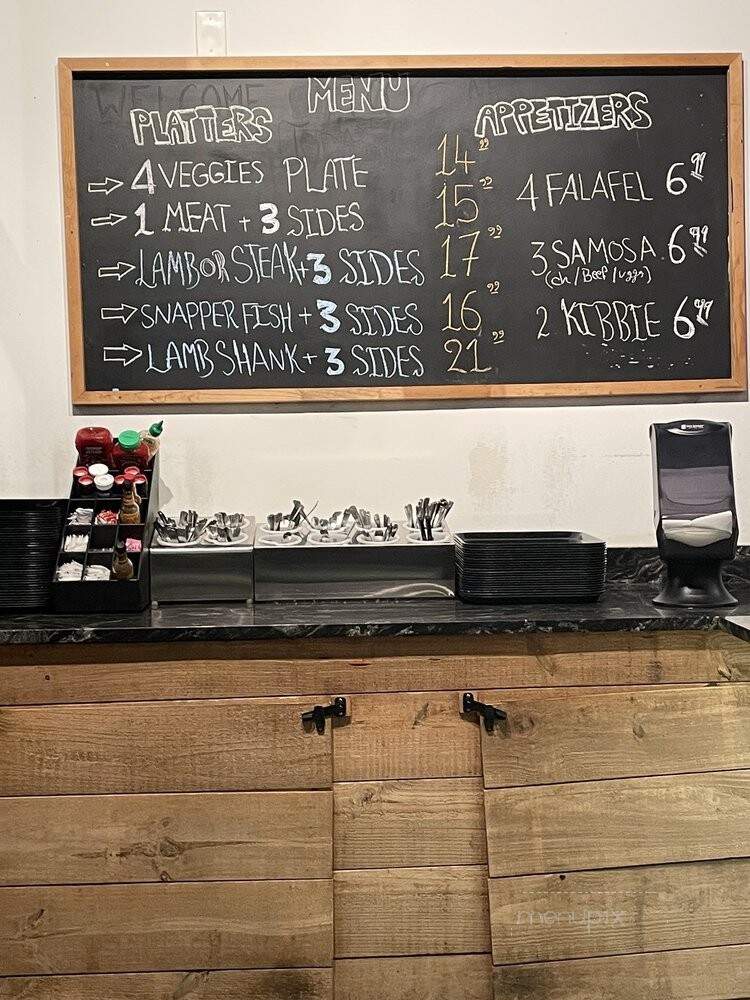 WELCOME
MENU
PLATTERS
4 VEGGIES PLATE 14 99
1 MEAT + 3 SIDES 15 99
LAMB OR STEAK + 3 SIDES 17 99
SNAPPER FISH + 3 SIDES 16 99
LAMB SHANK + 3 SIDES 21 99
APPETIZERS
4 FALAFEL 6 99
3 SAMOSA 6 99
(ch / Beef / veggs)
2 KIBBIE 6 99
menupix